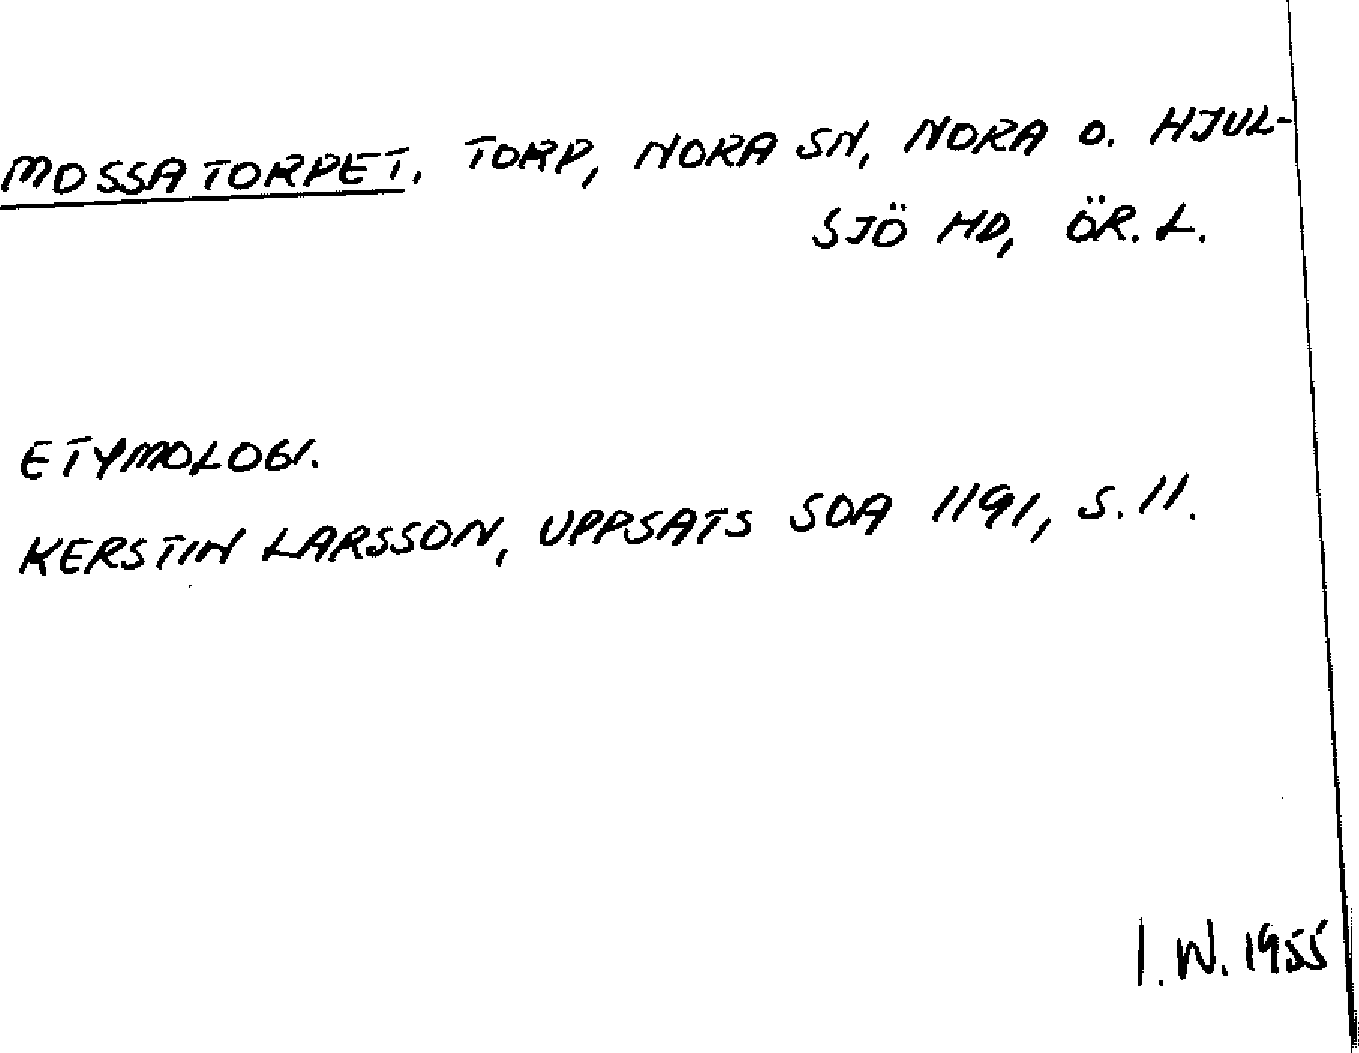 MOSSATORPET. TORP, NORA SN, NORA O. HJUL-
SJÖ HD, ÖR. L.
ETYMOLOGI.
KERSTIN LARSSON, UPPSATS SOA 1191, S. 11.
I. W. 1955